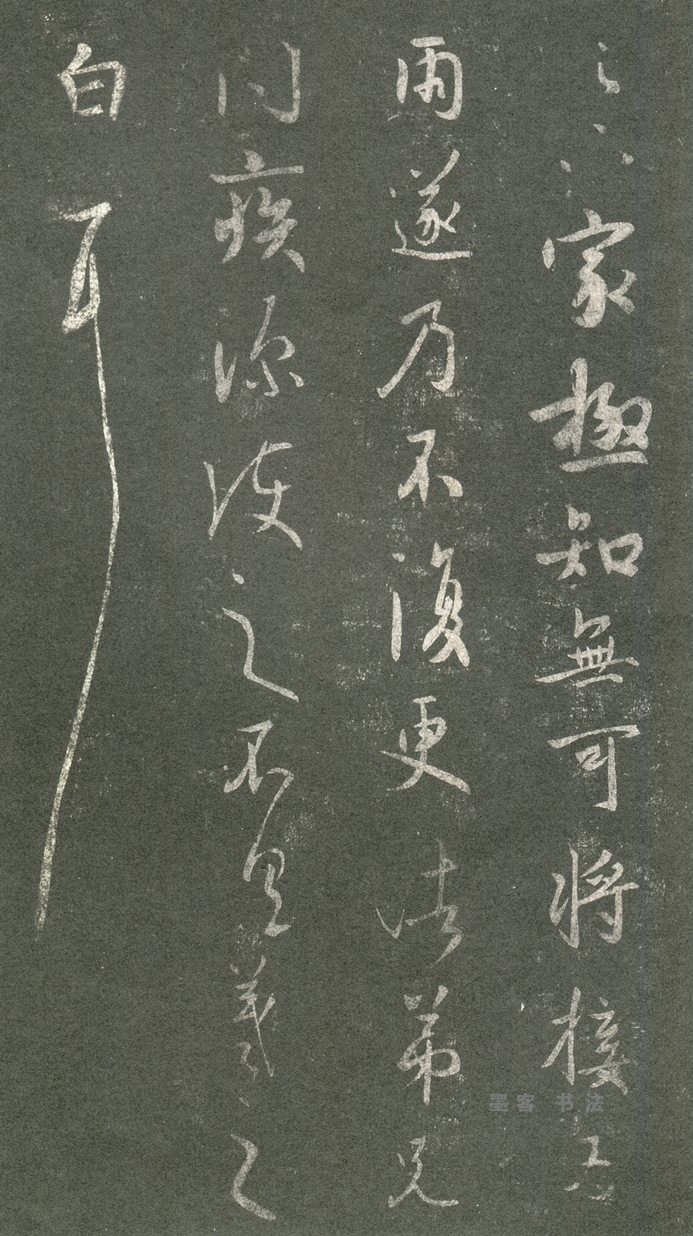 家極知無可將接為
雨遂乃不復更諸弟兄
問疾深之不具羲之
白耳
墨客 书法